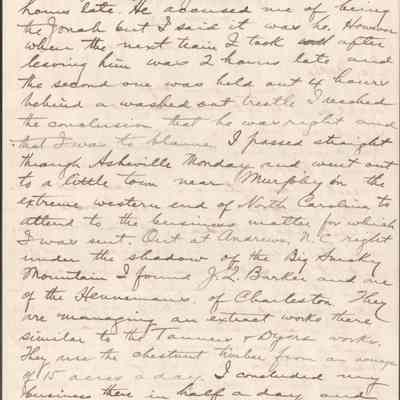 hours late. He accused me of being
the Jonah but I said it was he. However
when the next team I took after
leaving him was 2 hours late and
the second one was held out 4 hours
behind a washed out trestle I reached
the conclusion that he was right and
that I was to blame. I passed straight
through Asheville Monday and went out
to a little town near Murphy in the
extreme western end of North Carolina to
attend to the business matter for which
I was sent. Out at Andrews, N.C. right
under the shadow of the Big Smoky
Mountain I found J.Q. Barker and one
of the Hennemans. of Charleston They
are managing an extract works there
similar to the Tanners & Dyers works.
They use the chestnut timber from an average
of 15 acres a day. I concluded my
business there in half a day and